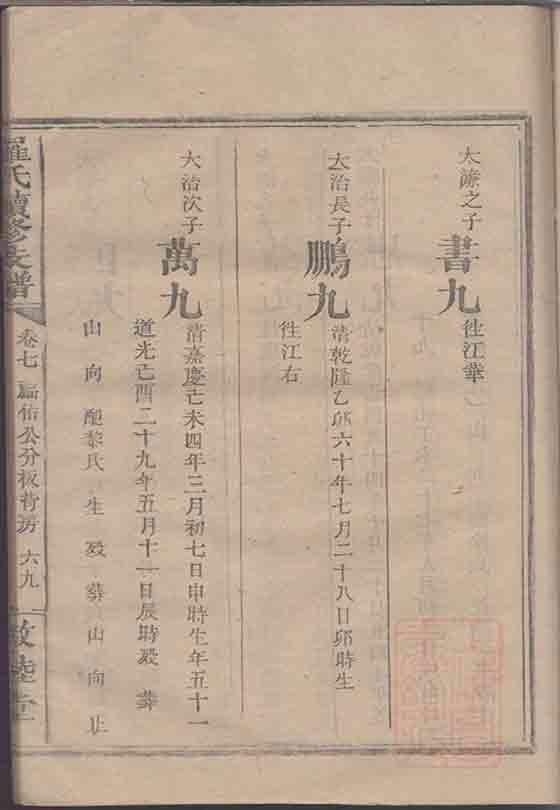 大謙之子
書九
徃江華
大治長子
鵬九
清乾隆乙邜六十年七月二十八日邜時生
徃江右
大治次子
萬九
清嘉慶己未四年三月初七日申時生年五十一
道光己酉二十九年五月十一日辰時歿 葬
山 向 配黎氏 生 歿 葬 山 向 止
羅氏續修支譜
卷七 佑公分板背房 六九
敦睦堂